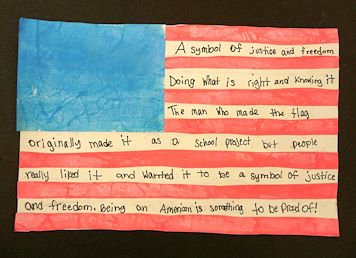 A symbol of justice and freedom
Doing what is right and knowing it
The man who made the flag
Originally made it as a school project but people
really liked it and wanted it to be a symbol of justice
and freedom. Being an American is something to be proud of!